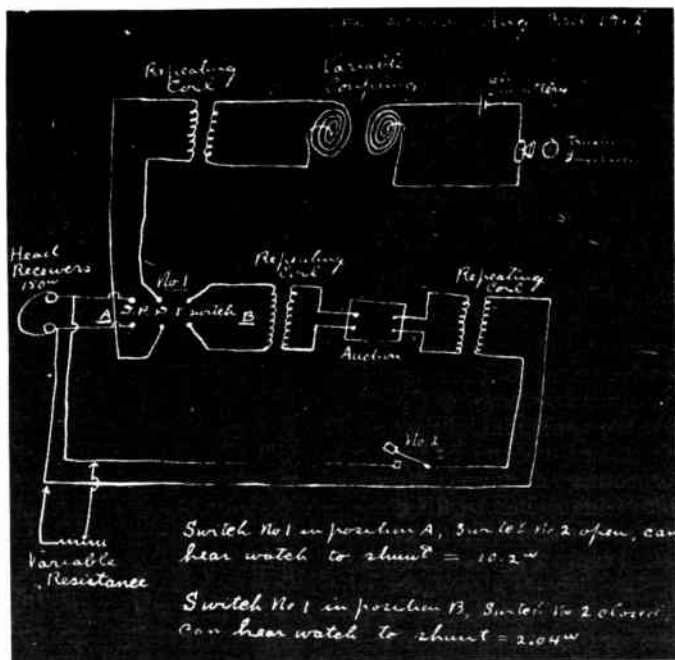 Aug 1912
Repeating
Coil
Variable
Coupling
Head
Receivers
150 ω
No. 1
A D.P. D.T. switch B
Repeating
Coil
Repeating
Coil
Auction
No. 2
Variable
Resistance
Switch No 1 in position A, Switch No 2 open, can
hear watch to shunt = 10.2 ω
Switch No 1 in position B, Switch No 2 closed
can hear watch to shunt = 2.04 ω